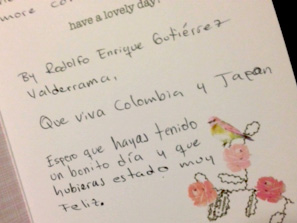 more co
have a lovely day!
By Rodolfo Enrique Gutiérrez
Valderrama,
Que viva Colombia y Japan
Espero que hayas tenido
un bonito día y que
hubieras estado muy
Feliz.